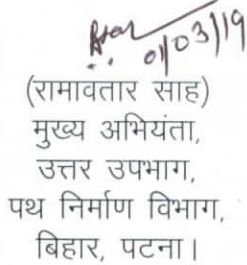 01/03/19
(रामावतार साह)
मुख्य अभियंता,
उत्तर उपभाग,
पथ निर्माण विभाग,
बिहार, पटना।